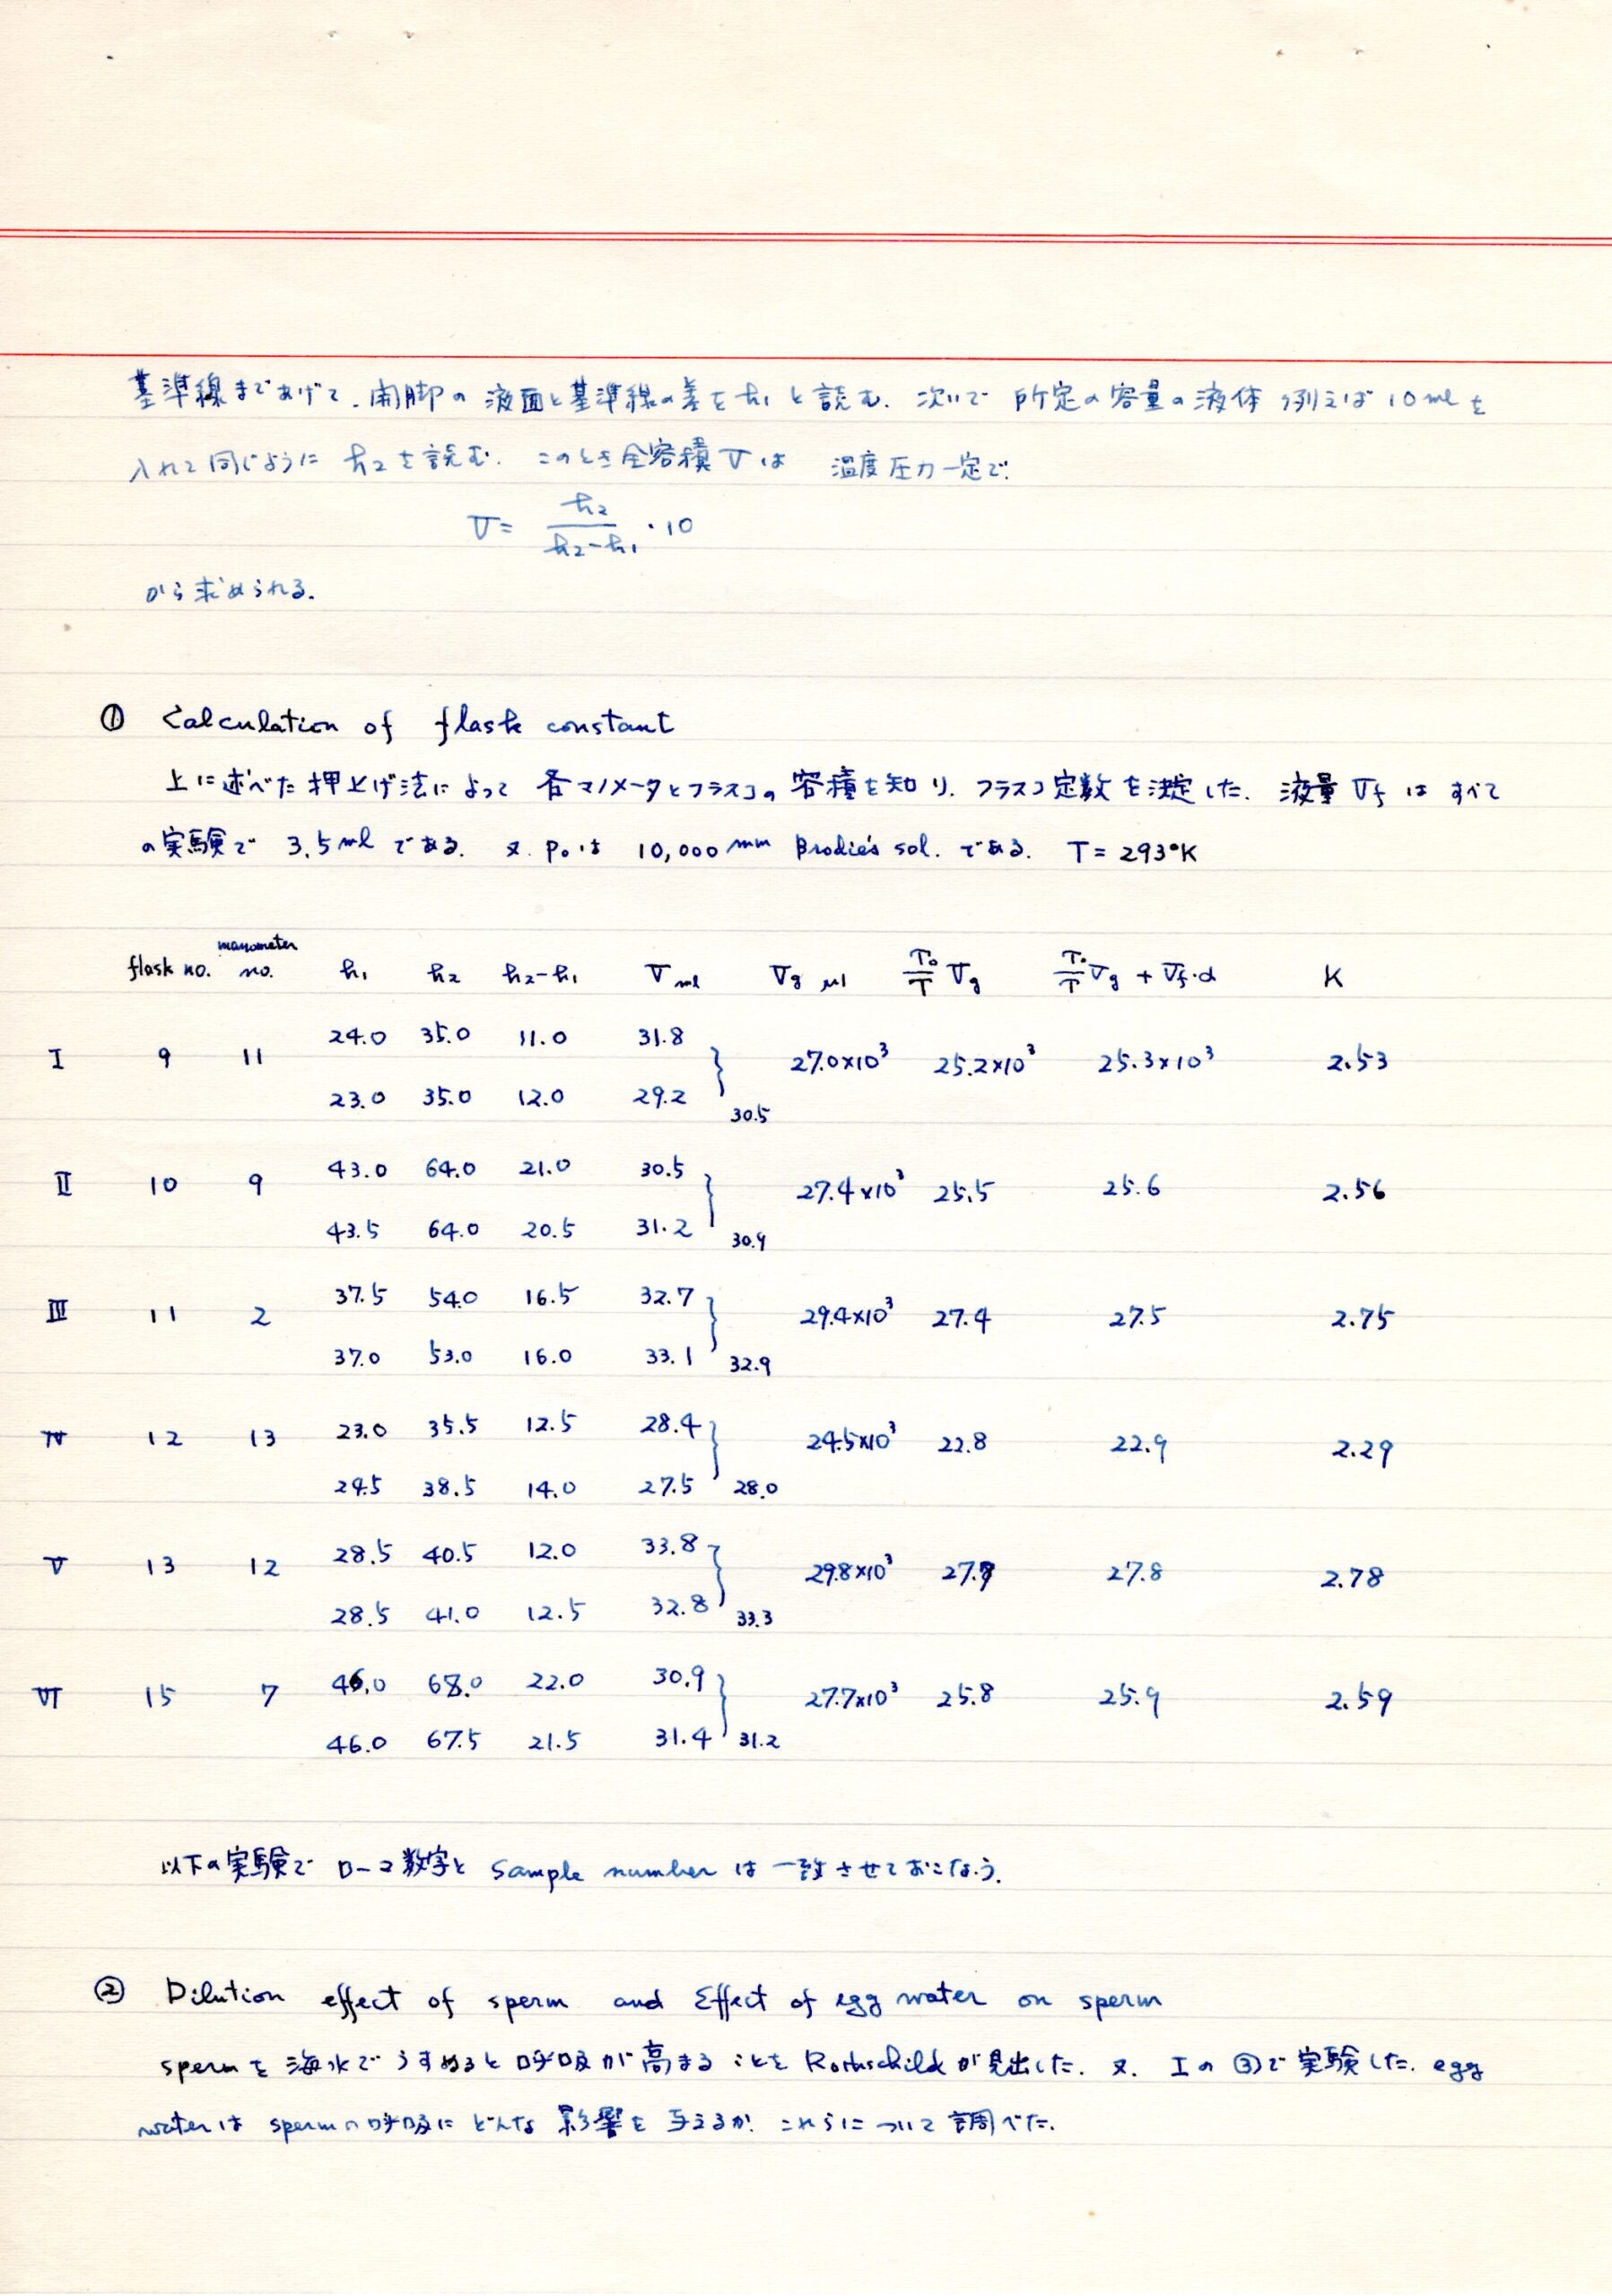 基準線まであげて、開脚の液面と基準線の差をh₁と読む. 次いで 所定の容量の液体 例えば 10mlを
入れて同じように h₂を読む. このとき全容積Vは 温度圧力一定で.
V = h₂/(h₂-h₁) · 10
から求められる.
① Calculation of flask constant
上に述べた押上げ法によって 各マノメータとフラスコの容積を知り、フラスコ定数を決定した. 液量 Vf は すべて
の実験で 3.5ml である. 又. P₀は 10,000 mm Brodie's sol. である. T = 293°K
flask no. manometer no. h₁ h₂ h₂-h₁ V ml Vg μl T₀/T Vg T₀/T Vg + Vf·α K
24.0 35.0 11.0 31.8
I 9 11 } 27.0×10³ 25.2×10³ 25.3×10³ 2.53
23.0 35.0 12.0 29.2 30.5
43.0 64.0 21.0 30.5
II 10 9 } 27.4×10³ 25.5 25.6 2.56
43.5 64.0 20.5 31.2 30.9
37.5 54.0 16.5 32.7
III 11 2 } 29.4×10³ 27.4 27.5 2.75
37.0 53.0 16.0 33.1 32.9
23.0 35.5 12.5 28.4
IV 12 13 } 24.5×10³ 22.8 22.9 2.29
24.5 38.5 14.0 27.5 28.0
28.5 40.5 12.0 33.8
V 13 12 } 29.8×10³ 27.7 27.8 2.78
28.5 41.0 12.5 32.8 33.3
46.0 68.0 22.0 30.9
VI 15 7 } 27.7×10³ 25.8 25.9 2.59
46.0 67.5 21.5 31.4 31.2
以下の実験で ローマ数字と Sample number は 一致させておこなう.
② Dilution effect of sperm and Effect of egg water on sperm
spermを 海水で うすめると 呼吸が高まる ことを Rothschildが見出した. 又. Iの③で実験した. egg
waterは spermの呼吸に どんな 影響を 与えるか. これらについて調べた.